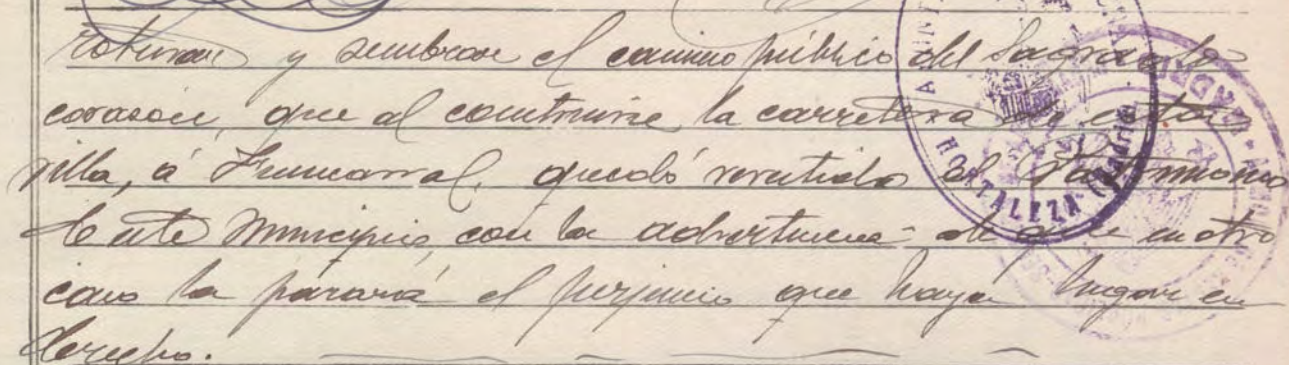 roturar y sembrar el camino público del Sagrado
corasón, que al construirse la carretera de esta
villa, á Fuencarral, quedó revertido al Patrimonio
de este Municipio, con la advertencia de que en otro
caso la parará el perjuicio que haya lugar en
derecho.
HORTALEZA (Madrid)